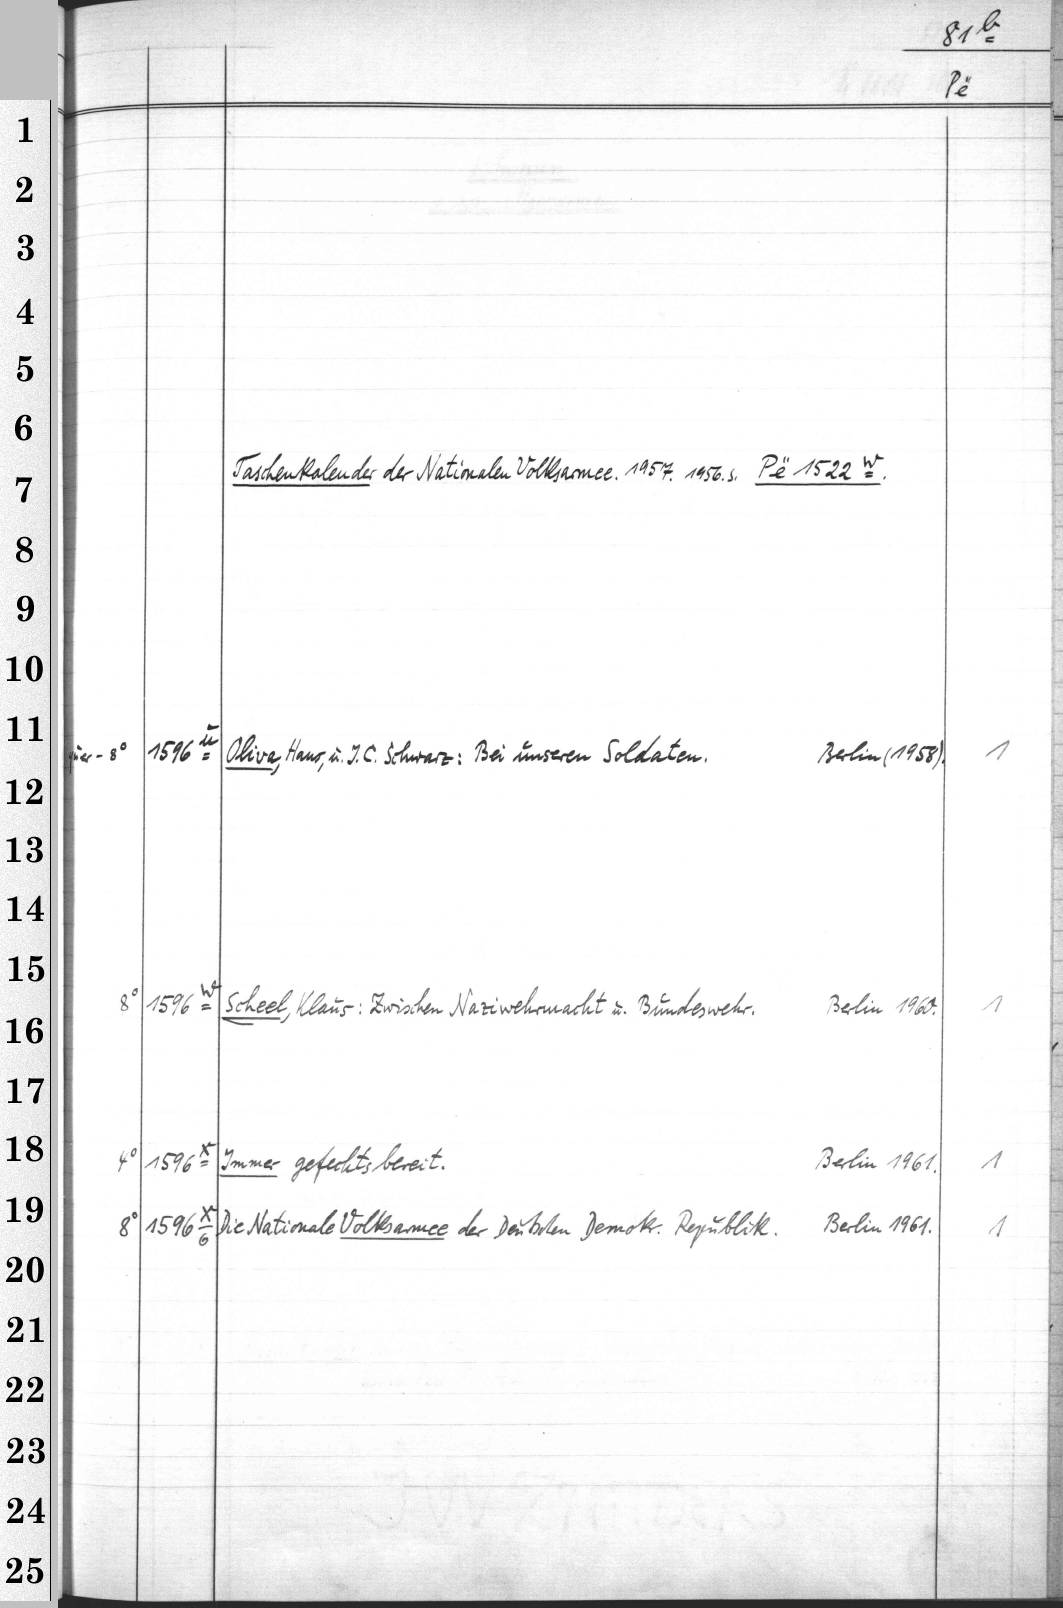 81 b
Pë
1
2
3
4
5
6
Taschenkalender der Nationalen Volksarmee. 1957. 1956. s. Pë 1522 w.
7
8
9
10
11
quer-8° 1596 u Oliva, Hans, u. J. C. Schwarz: Bei unseren Soldaten. Berlin (1958). 1
12
13
14
15
8° 1596 w Scheel, Klaus: Zwischen Naziwehrmacht u. Bundeswehr. Berlin 1960. 1
16
17
18
4° 1596 x Immer gefechtsbereit. Berlin 1961. 1
19
8° 1596 x/6 Die Nationale Volksarmee der Deutschen Demokr. Republik. Berlin 1961. 1
20
21
22
23
24
25